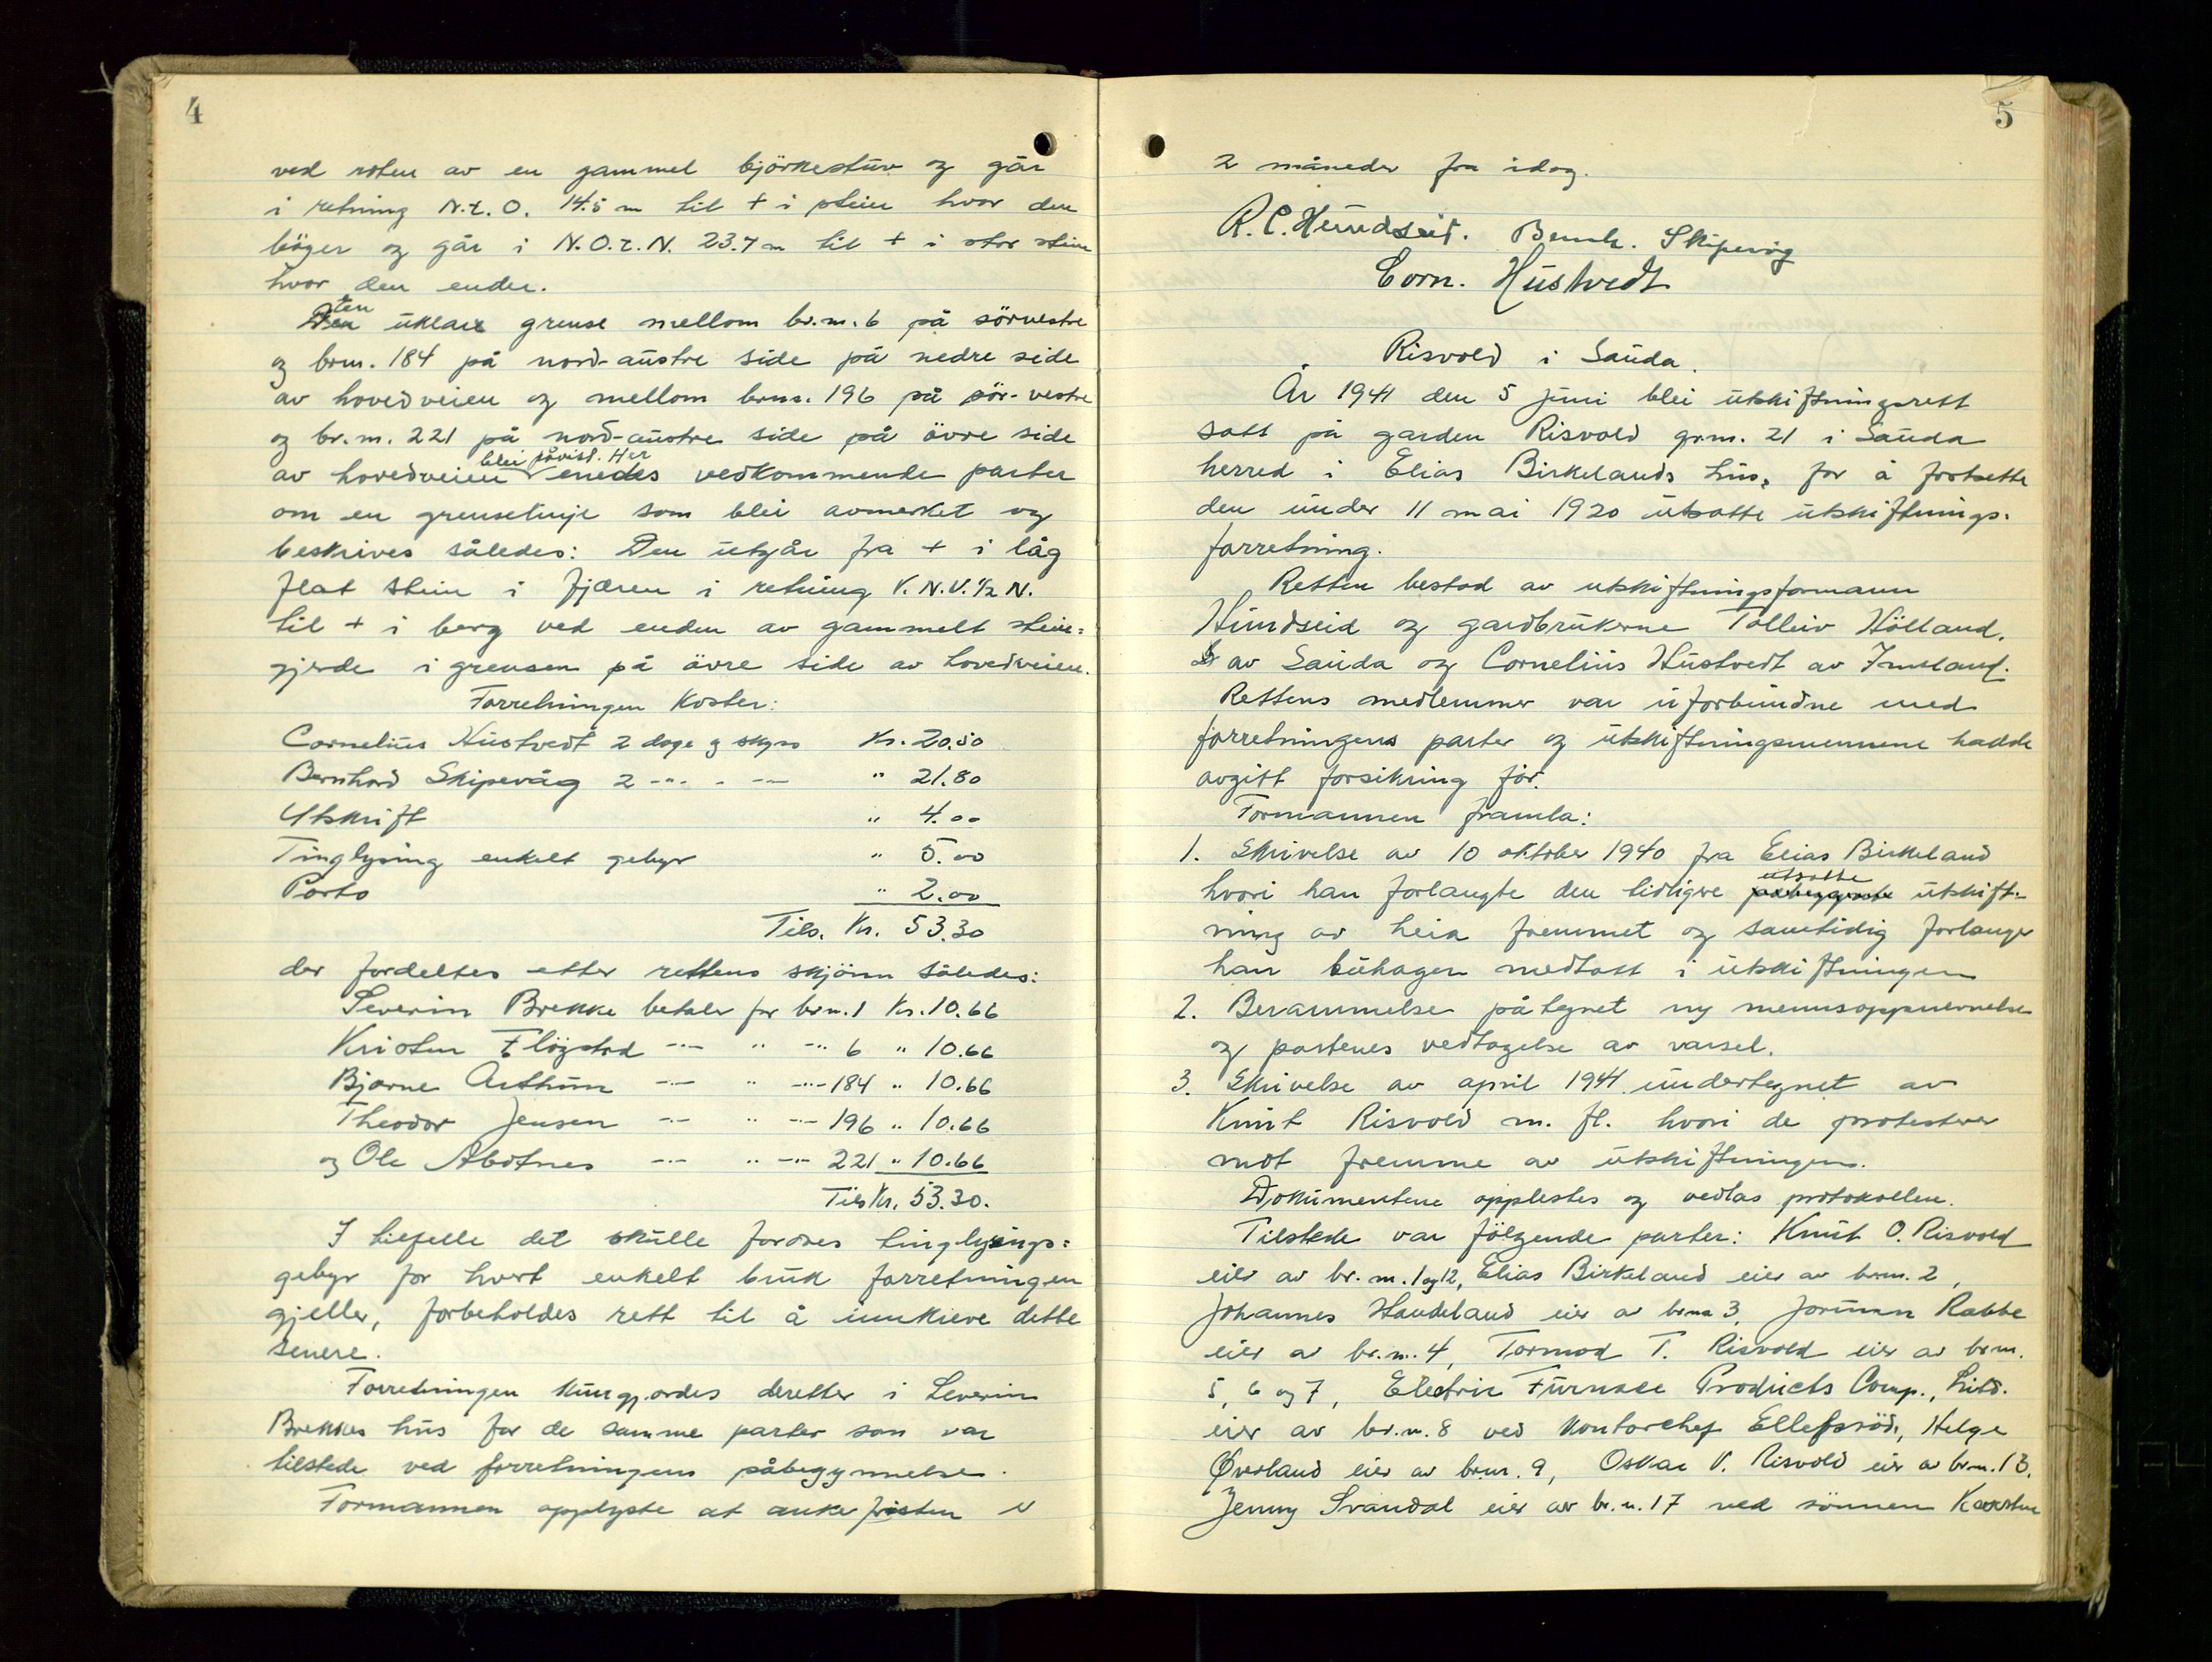 4
ved roten av en gammel björkestuv og går
i retning N.t.O. 14.5 m til + i stein hvor den
böyer og går i N.O.t.N. 23.7 m til + i stor stein
hvor den ender.
Den uklare grense mellom br.n. 6 på sörvestre
og brn. 184 på nord-austre side på nedre side
av hovedveien og mellom brn. 196 på sör-vestre
og br.n. 221 på nord-austre side på övre side
blei påvist. Her
av hovedveien enedes vedkommende parter
om en grenselinje som blei avmerket og
beskrives således: Den utgår fra + i låg
flat stein i fjæren i retning V.N.V. 1/2 N.
til + i berg ved enden av gammelt stein=
gjerde i grensen på övre side av hovedveien.
Forretningen koster:
Cornelius Hustvedt 2 dage og skyss Kr. 20.50
Bernhard Skipevåg 2 -"- - -"- " 21.80
Utskrift " 4.00
Tinglysing enkelt gebyr " 5.00
Porto " 2.00
Tils. Kr. 53.30
der fordeltes etter rettens skjönn således:
Severin Brekke betaler for brn. 1 Kr. 10.66
Kristen Flögstad -"- " -"- 6 " 10.66
Bjarne Arthun -"- " -"- 184 " 10.66
Theodor Jensen -"- " -"- 196 " 10.66
og Ole Abotnes -"- " -"- 221 " 10.66
Tils Kr. 53.30.
I tilfelle det skulle fordres tinglysings=
gebyr for hvert enkelt bruk forretningen
gjeller, forbeholdes rett til å innkreve dette
senere.
Forretningen kungjordes deretter i Severin
Brekkes hus for de samme parter som var
tilstede ved forretningens påbegynnelse.
Formannen opplyste at ankefristen er
5
2 måneder fra idag.
R. C. Hundseid. Bernh. Skipevåg
Corn. Hustvedt
Risvold i Sauda.
År 1941 den 5 juni blei utskiftningsrett
satt på garden Risvold grn. 21 i Sauda
herred i Elias Birkelands hus, for å fortsette
den under 11 mai 1920 utsatte utskiftnings-
forretning.
Retten bestod av utskiftningsformann
Hundseid og gardbrukerne Tolleiv Hölland,
av Sauda og Cornelius Hustvedt av Imsland.
Rettens medlemmer var uforbundne med
forretningens parter og utskiftningsmennene hadde
avgitt forsikring för.
Formannen framla:
1. Skrivelse av 10 oktober 1940 fra Elias Birkeland
utsatte
hvori han forlangte den tidligere påbegynte utskift-
ning av heia fremmet og samtidig forlanger
han kuhagen medtatt i utskiftningen
2. Berammelse påtegnet ny mennsoppnevnelse
og partenes vedtagelse av varsel.
3. Skrivelse av april 1941 undertegnet av
Knut Risvold m. fl. hvori de protesterer
mot fremme av utskiftningen.
Dokumentene opplestes og vedlas protokollen.
Tilstede var fölgende parter: Knut O. Risvold
eier av br.n. 1 og 12, Elias Birkeland eier av brn. 2,
Johannes Handeland eier av brn. 3, Jorunn Rabbe
eier av br.n. 4, Tormod T. Risvold eier av brn.
5, 6 og 7, Electric Furnace Products Comp., Lttd.
eier av br.n. 8 ved kontorchef Ellefsröd, Helge
Øverland eier av brn. 9, Oskar V. Risvold eier av brn. 13.
Jenny Svandal eier av br.n. 17 ved sönnen Karsten